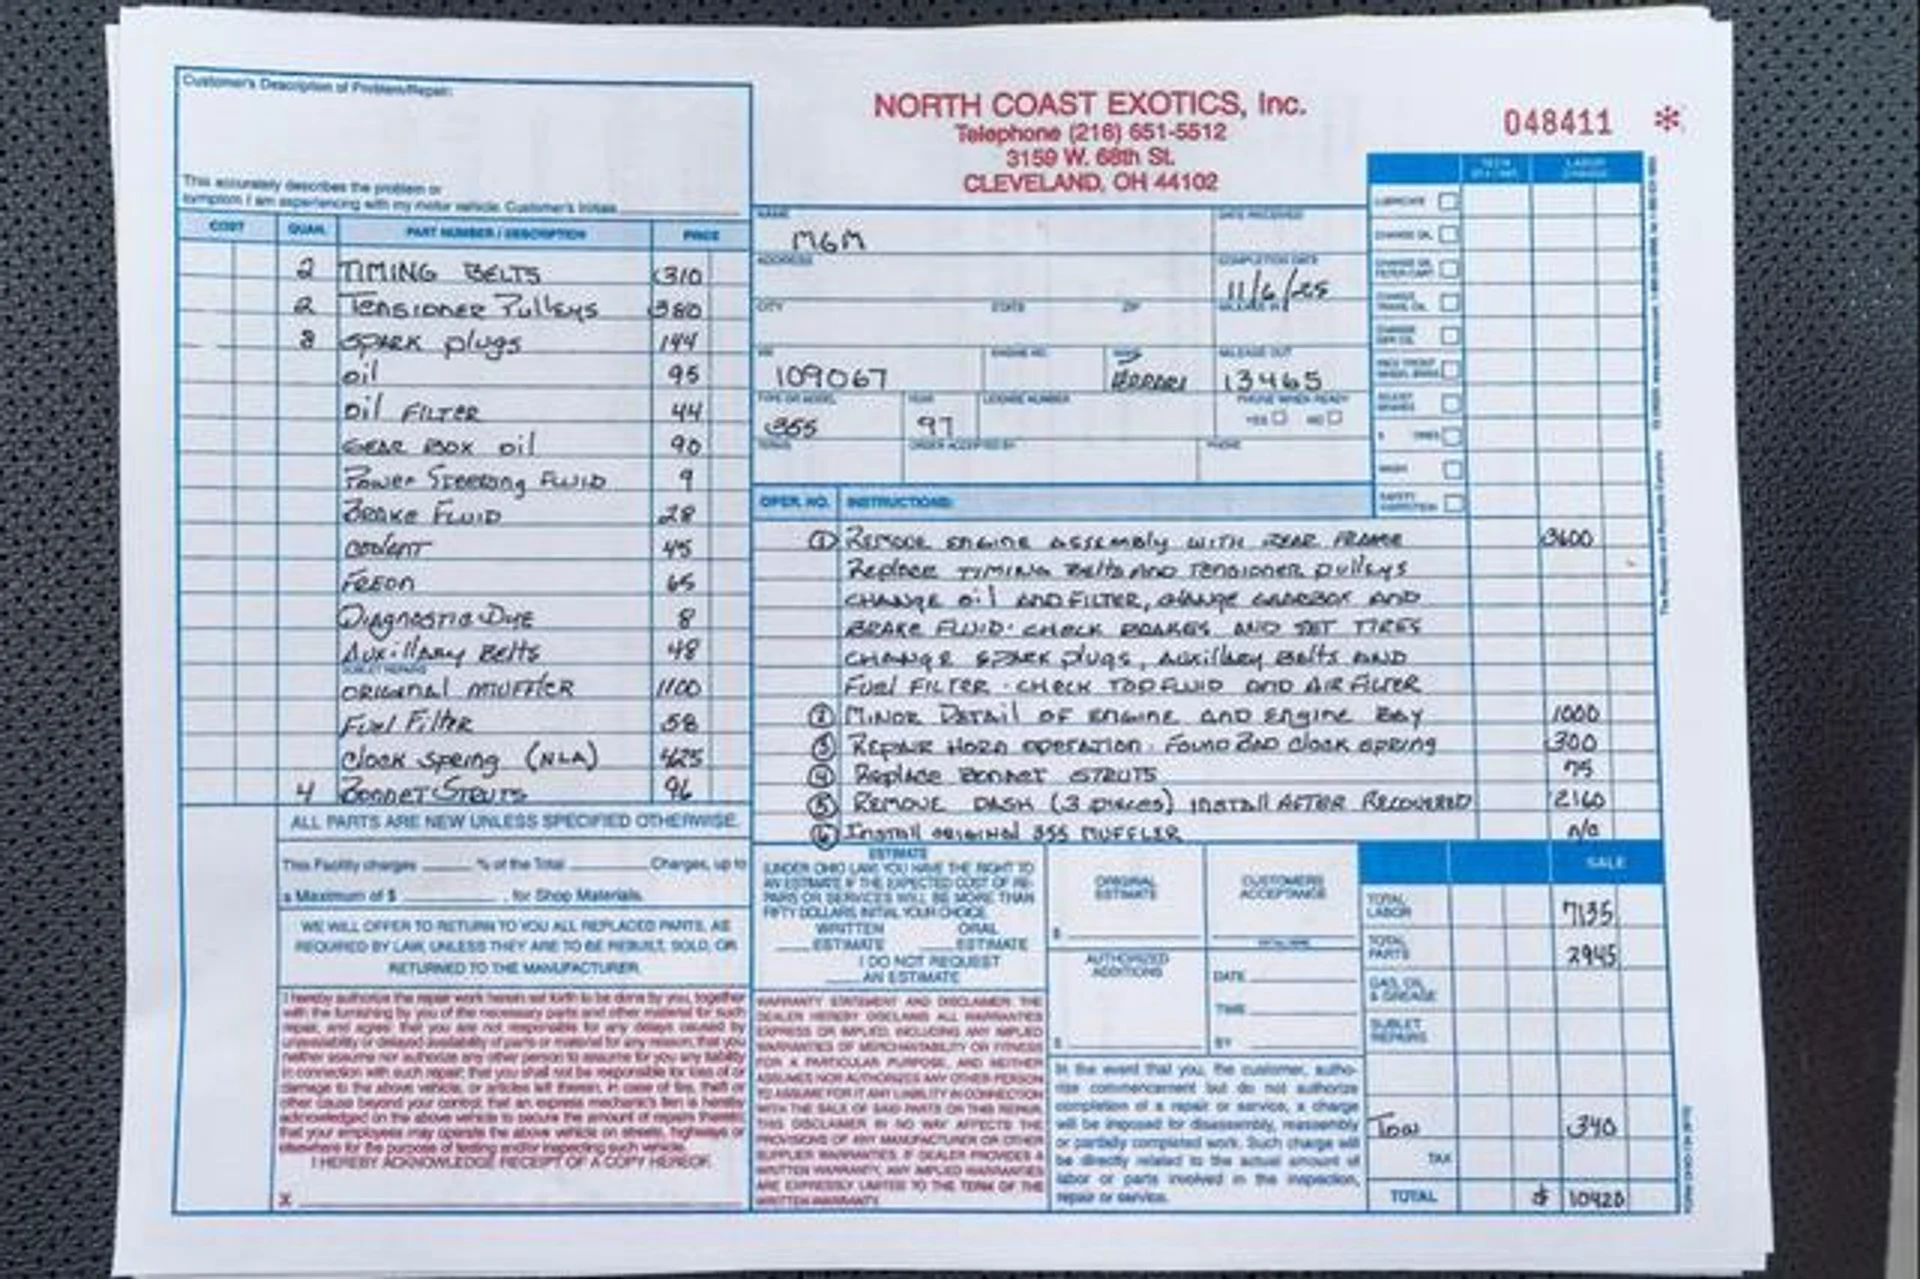 Customer's Description of Problem/Repair:
This accurately describes the problem or
symptom I am experiencing with my motor vehicle. Customer's Initials
COST QUAN. PART NUMBER / DESCRIPTION PRICE
2 TIMING BELTS 310
2 Tensioner Pulleys 380
8 SPARK plugs 144
oil 95
oil FILTER 44
GEAR BOX oil 90
Power Steering FLUID 9
BRAKE FLUID 28
coolant 45
Freon 65
Diagnostic Dye 8
Auxillary Belts 48
SUBLET REPAIRS
ORIGINAL MUFFLER 1100
Fuel Filter 58
Clock spring (NLA) 425
4 Bonnet Struts 96
ALL PARTS ARE NEW UNLESS SPECIFIED OTHERWISE.
This Facility charges % of the Total Charges, up to
a Maximum of $ , for Shop Materials.
WE WILL OFFER TO RETURN TO YOU ALL REPLACED PARTS, AS
REQUIRED BY LAW, UNLESS THEY ARE TO BE REBUILT, SOLD, OR
RETURNED TO THE MANUFACTURER.
I hereby authorize the repair work herein set forth to be done by you, together
with the furnishing by you of the necessary parts and other material for such
repair, and agree: that you are not responsible for any delays caused by
unavailability or delayed availability of parts or material for any reason; that you
neither assume nor authorize any other person to assume for you any liability
in connection with such repair; that you shall not be responsible for loss of or
damage to the above vehicle, or articles left therein, in case of fire, theft or
other cause beyond your control; that an express mechanic's lien is hereby
acknowledged on the above vehicle to secure the amount of repairs thereto;
that your employees may operate the above vehicle on streets, highways or
elsewhere for the purpose of testing and/or inspecting such vehicle.
I HEREBY ACKNOWLEDGE RECEIPT OF A COPY HEREOF.
X
NORTH COAST EXOTICS, Inc.
Telephone (216) 651-5512
3159 W. 68th St.
CLEVELAND, OH 44102
048411 *
NAME DATE RECEIVED
MGM
ADDRESS COMPLETION DATE
11/6/25
CITY STATE ZIP MILEAGE IN
ENGINE NO. MAKE MILEAGE OUT
109067 FERRARI 13465
TYPE OR MODEL YEAR LICENSE NUMBER PHONE WHEN READY
355 97 YES NO
TERMS ORDER ACCEPTED BY PHONE
LABOR CHARGE
LUBRICATE
CHANGE OIL
CHANGE OIL FILTER CART.
CHANGE TRANS. OIL
CHANGE DIFF. OIL
PACK FRONT WHEEL BRGS.
ADJUST BRAKES
TIRES
WASH
SAFETY INSPECTION
OPER. NO. INSTRUCTIONS:
① REMOVE ENGINE ASSEMBLY WITH REAR FRAME 3600
Replace TIMING Belts AND TENSIONER pulleys
CHANGE oil AND FILTER, CHANGE GEARBOX AND
BRAKE FLUID. CHECK BRAKES AND SET TIRES
CHANGE SPARK plugs, Auxillary Belts AND
FUEL FILTER. CHECK TOP FLUID AND AIR FILTER
② MINOR DETAIL OF ENGINE AND ENGINE BAY 1000
③ REPAIR HORN OPERATION. FOUND BAD CLOCK SPRING 300
④ Replace Bonnet STRUTS 75
⑤ REMOVE DASH (3 pieces) INSTALL AFTER RECOVERED 2160
⑥ Install original 355 MUFFLER n/c
ESTIMATE
(UNDER OHIO LAW) YOU HAVE THE RIGHT TO
AN ESTIMATE IF THE EXPECTED COST OF RE-
PAIRS OR SERVICES WILL BE MORE THAN
FIFTY DOLLARS INITIAL YOUR CHOICE.
WRITTEN ESTIMATE ORAL ESTIMATE
I DO NOT REQUEST
AN ESTIMATE
WARRANTY STATEMENT AND DISCLAIMER: THE
DEALER HEREBY DISCLAIMS ALL WARRANTIES
EXPRESS OR IMPLIED, INCLUDING ANY IMPLIED
WARRANTIES OF MERCHANTABILITY OR FITNESS
FOR A PARTICULAR PURPOSE, AND NEITHER
ASSUMES NOR AUTHORIZES ANY OTHER PERSON
TO ASSUME FOR IT ANY LIABILITY IN CONNECTION
WITH THE SALE OF SAID PARTS OR THIS REPAIR.
THIS DISCLAIMER IN NO WAY AFFECTS THE
PROVISIONS OF ANY MANUFACTURER OR OTHER
SUPPLIER WARRANTIES. IF DEALER PROVIDES A
WRITTEN WARRANTY, ANY IMPLIED WARRANTIES
ARE EXPRESSLY LIMITED TO THE TERM OF THE
WRITTEN WARRANTY.
ORIGINAL ESTIMATE
$
CUSTOMERS ACCEPTANCE
AUTHORIZED ADDITIONS
$
DATE
TIME
BY
In the event that you, the customer, autho-
rize commencement but do not authorize
completion of a repair or service, a charge
will be imposed for disassembly, reassembly
or partially completed work. Such charge will
be directly related to the actual amount of
labor or parts involved in the inspection,
repair or service.
SALE
TOTAL LABOR 7135
TOTAL PARTS 2945
GAS, OIL & GREASE
SUBLET REPAIRS
Tow 340
TAX
TOTAL $ 10420